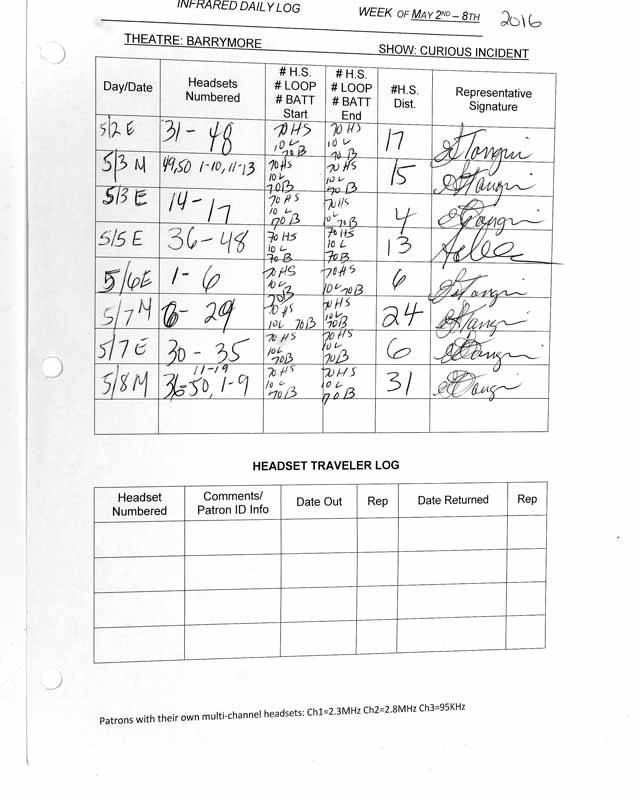 INFRARED DAILY LOG WEEK OF MAY 2ND – 8TH 2016
THEATRE: BARRYMORE SHOW: CURIOUS INCIDENT
Day/Date Headsets Numbered # H.S. # LOOP # BATT Start # H.S. # LOOP # BATT End #H.S. Dist. Representative Signature
5/2 E 31 - 48 70 HS 10 L 70 B 70 HS 10 L 70 B 17
5/3 M 49,50 1-10, 11-13 70 HS 10 L 70 B 70 HS 10 L 70 B 15
5/3 E 14 - 17 70 HS 10 L 70 B 70 HS 10 L 70 B 4
5/5 E 36 - 48 70 HS 10 L 70 B 70 HS 10 L 70 B 13
5/6 E 1 - 6 70 HS 10 L 70 B 70 HS 10 L 70 B 6
5/7 M 6 - 29 70 HS 10 L 70 B 70 HS 10 L 70 B 24
5/7 E 30 - 35 70 HS 10 L 70 B 70 HS 10 L 70 B 6
5/8 M 11-19 36-50, 1-9 70 HS 10 L 70 B 70 HS 10 L 70 B 31
HEADSET TRAVELER LOG
Headset Numbered Comments/ Patron ID Info Date Out Rep Date Returned Rep
Patrons with their own multi-channel headsets: Ch1=2.3MHz Ch2=2.8MHz Ch3=95KHz